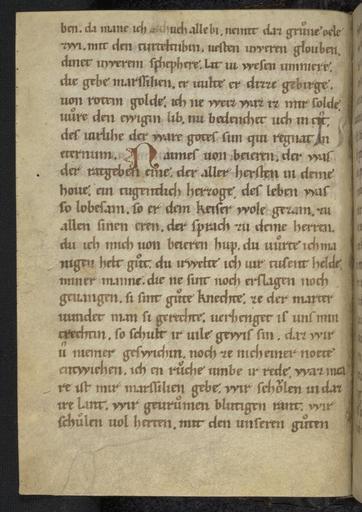 ben. da mane ich uch alle bi. nemet daz grůne ole
zwi. mit den turteltubin. uesten iweren glouben.
dinet iwerem schephere. lat iu wesen ummere.
die gebe marssilien. er uulte er dizze gebirge.
uon rotem golde. ich ne weiz waz iz mir solde
wůre den ewigin lib. nu bedenchet uch in crist.
des urliche der ware gotes sun qui regnat in
eternum. Naimes uon beieren. der was
der ratgeben eine. der aller hersten in deme
houe. ein tugentlich herzoge. des leben was
so lobesam. so er dem keiser wole gezam. zu
allen sinen eren. der sprach zu deme herren.
du ich mich uon beieren hup. du uůrte ich ma
nigen helt gůt. du irwelte ich uir tusent helde
miner manne. die ne sint noch erslagen noch
geuangen. si sint gůte knechte. ze der marter
uundet man si gerechte. uerhenget is uns min
trechtin. so schult ir uile gewis sin. daz wir
ů niemer geswichin. noch ze nicheiner note
entwiehen. ich en růche umbe ir rede. waz ma
re ist mir marssilien gebe. wir schǒlen in daz
ire lant. wir geurůmen blutigen rant. wir
schůlen uol herten. mit den unseren gůten